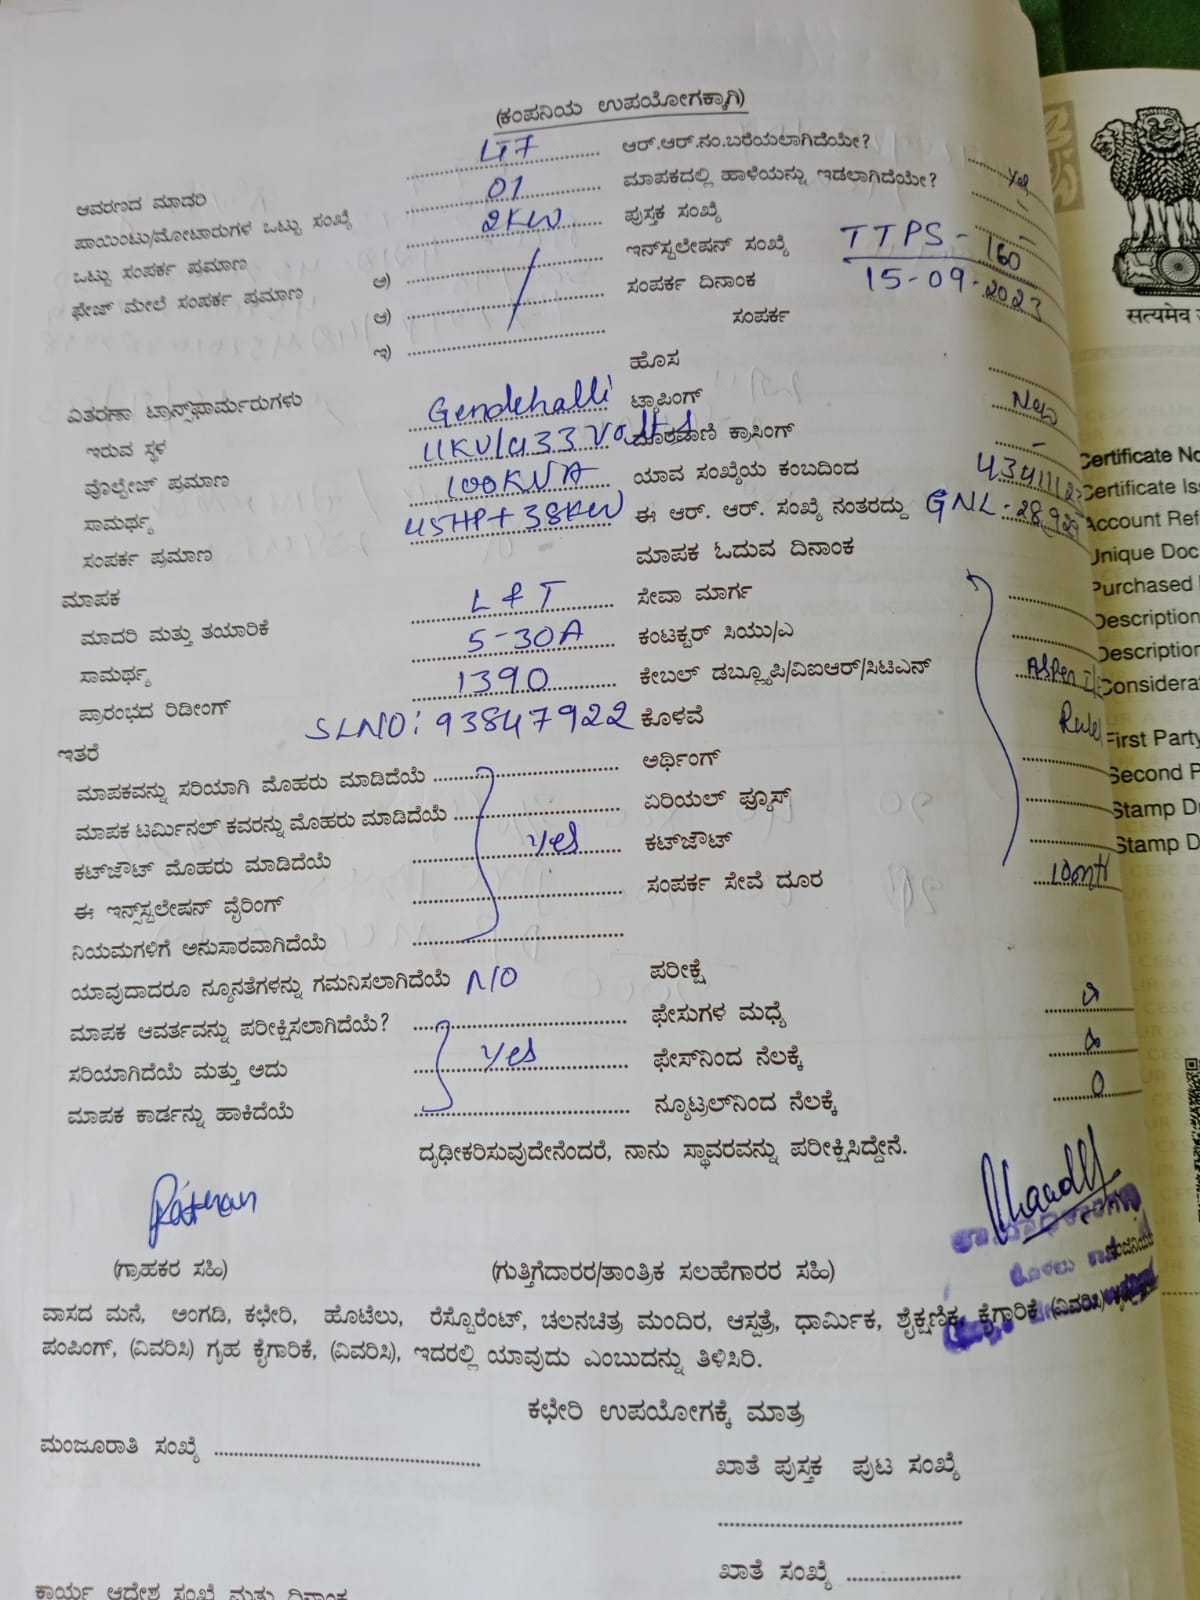 (ಕಂಪನಿಯ ಉಪಯೋಗಕ್ಕಾಗಿ)
ಆವರಣದ ಮಾದರಿ LT7
ಪಾಯಿಂಟು/ಮೋಟಾರುಗಳ ಒಟ್ಟು ಸಂಖ್ಯೆ 01
ಒಟ್ಟು ಸಂಪರ್ಕ ಪ್ರಮಾಣ 2KW
ಫೇಜ್ ಮೇಲೆ ಸಂಪರ್ಕ ಪ್ರಮಾಣ ಅ)
ಆ)
ಇ)
ವಿತರಣಾ ಟ್ರಾನ್ಸ್‌ಫಾರ್ಮರುಗಳು
ಇರುವ ಸ್ಥಳ Gendehalli
ವೋಲ್ಟೇಜ್ ಪ್ರಮಾಣ 11KV/433 Volts
ಸಾಮರ್ಥ್ಯ 100KVA
ಸಂಪರ್ಕ ಪ್ರಮಾಣ 45HP+38KW
ಮಾಪಕ
ಮಾದರಿ ಮತ್ತು ತಯಾರಿಕೆ L&T
ಸಾಮರ್ಥ್ಯ 5-30A
ಪ್ರಾರಂಭದ ರಿಡೀಂಗ್ 1390
ಇತರೆ SLNO: 93847922
ಮಾಪಕವನ್ನು ಸರಿಯಾಗಿ ಮೊಹರು ಮಾಡಿದೆಯೆ
ಮಾಪಕ ಟರ್ಮಿನಲ್ ಕವರನ್ನು ಮೊಹರು ಮಾಡಿದೆಯೆ
ಕಟ್‌ಔಟ್ ಮೊಹರು ಮಾಡಿದೆಯೆ Yes
ಈ ಇನ್ಸ್‌ಸ್ಟಲೇಷನ್ ವೈರಿಂಗ್
ನಿಯಮಗಳಿಗೆ ಅನುಸಾರವಾಗಿದೆಯೆ
ಯಾವುದಾದರೂ ನ್ಯೂನತೆಗಳನ್ನು ಗಮನಿಸಲಾಗಿದೆಯೆ NO
ಮಾಪಕ ಆವರ್ತವನ್ನು ಪರೀಕ್ಷಿಸಲಾಗಿದೆಯೆ?
ಸರಿಯಾಗಿದೆಯೆ ಮತ್ತು ಅದು Yes
ಮಾಪಕ ಕಾರ್ಡನ್ನು ಹಾಕಿದೆಯೆ
ಆರ್.ಆರ್.ನಂ.ಬರೆಯಲಾಗಿದೆಯೇ?
ಮಾಪಕದಲ್ಲಿ ಹಾಳೆಯನ್ನು ಇಡಲಾಗಿದೆಯೇ? Yes
ಪುಸ್ತಕ ಸಂಖ್ಯೆ
ಇನ್‌ಸ್ಟಲೇಷನ್ ಸಂಖ್ಯೆ TTPS-160
ಸಂಪರ್ಕ ದಿನಾಂಕ 15-09-2023
ಸಂಪರ್ಕ
ಹೊಸ
ಟ್ಯಾಪಿಂಗ್ New
ದೂರವಾಣಿ ಕ್ರಾಸಿಂಗ್ -
ಯಾವ ಸಂಖ್ಯೆಯ ಕಂಬದಿಂದ
ಈ ಆರ್. ಆರ್. ಸಂಖ್ಯೆ ನಂತರದ್ದು
ಮಾಪಕ ಓದುವ ದಿನಾಂಕ
ಸೇವಾ ಮಾರ್ಗ
ಕಂಟಕ್ಟರ್ ಸಿಯು/ಎ
ಕೇಬಲ್ ಡಬ್ಲ್ಯೂಪಿ/ವಿಐಆರ್/ಸಿಟಿಎನ್ As Per
ಕೊಳವೆ Rules
ಅರ್ಥಿಂಗ್
ಏರಿಯಲ್ ಫ್ಯೂಸ್
ಕಟ್‌ಔಟ್
ಸಂಪರ್ಕ ಸೇವೆ ದೂರ
ಪರೀಕ್ಷೆ
ಫೇಸುಗಳ ಮಧ್ಯೆ
ಫೇಸ್‌ನಿಂದ ನೆಲಕ್ಕೆ
ನ್ಯೂಟ್ರಲ್‌ನಿಂದ ನೆಲಕ್ಕೆ 0
ದೃಢೀಕರಿಸುವುದೇನೆಂದರೆ, ನಾನು ಸ್ಥಾವರವನ್ನು ಪರೀಕ್ಷಿಸಿದ್ದೇನೆ.
(ಗ್ರಾಹಕರ ಸಹಿ)
(ಗುತ್ತಿಗೆದಾರರ/ತಾಂತ್ರಿಕ ಸಲಹೆಗಾರರ ಸಹಿ)
ವಾಸದ ಮನೆ, ಅಂಗಡಿ, ಕಛೇರಿ, ಹೊಟೆಲು, ರೆಸ್ಟೊರೆಂಟ್, ಚಲನಚಿತ್ರ ಮಂದಿರ, ಆಸ್ಪತ್ರೆ, ಧಾರ್ಮಿಕ, ಶೈಕ್ಷಣಿಕ, ಕೈಗಾರಿಕೆ (ವಿವರಿಸಿ)
ಪಂಪಿಂಗ್, (ವಿವರಿಸಿ) ಗೃಹ ಕೈಗಾರಿಕೆ, (ವಿವರಿಸಿ), ಇದರಲ್ಲಿ ಯಾವುದು ಎಂಬುದನ್ನು ತಿಳಿಸಿರಿ.
ಕಛೇರಿ ಉಪಯೋಗಕ್ಕೆ ಮಾತ್ರ
ಮಂಜೂರಾತಿ ಸಂಖ್ಯೆ
ಖಾತೆ ಪುಸ್ತಕ ಪುಟ ಸಂಖ್ಯೆ
ಖಾತೆ ಸಂಖ್ಯೆ
ಕಾರ್ಯ ಆದೇಶ ಸಂಖ್ಯೆ ಮತ್ತು ದಿನಾಂಕ
सत्यमेव
Certificate No
Certificate Iss
Account Ref
Unique Doc
Purchased
Description
Description
Considerat
First Party
Second P
Stamp Du
Stamp D